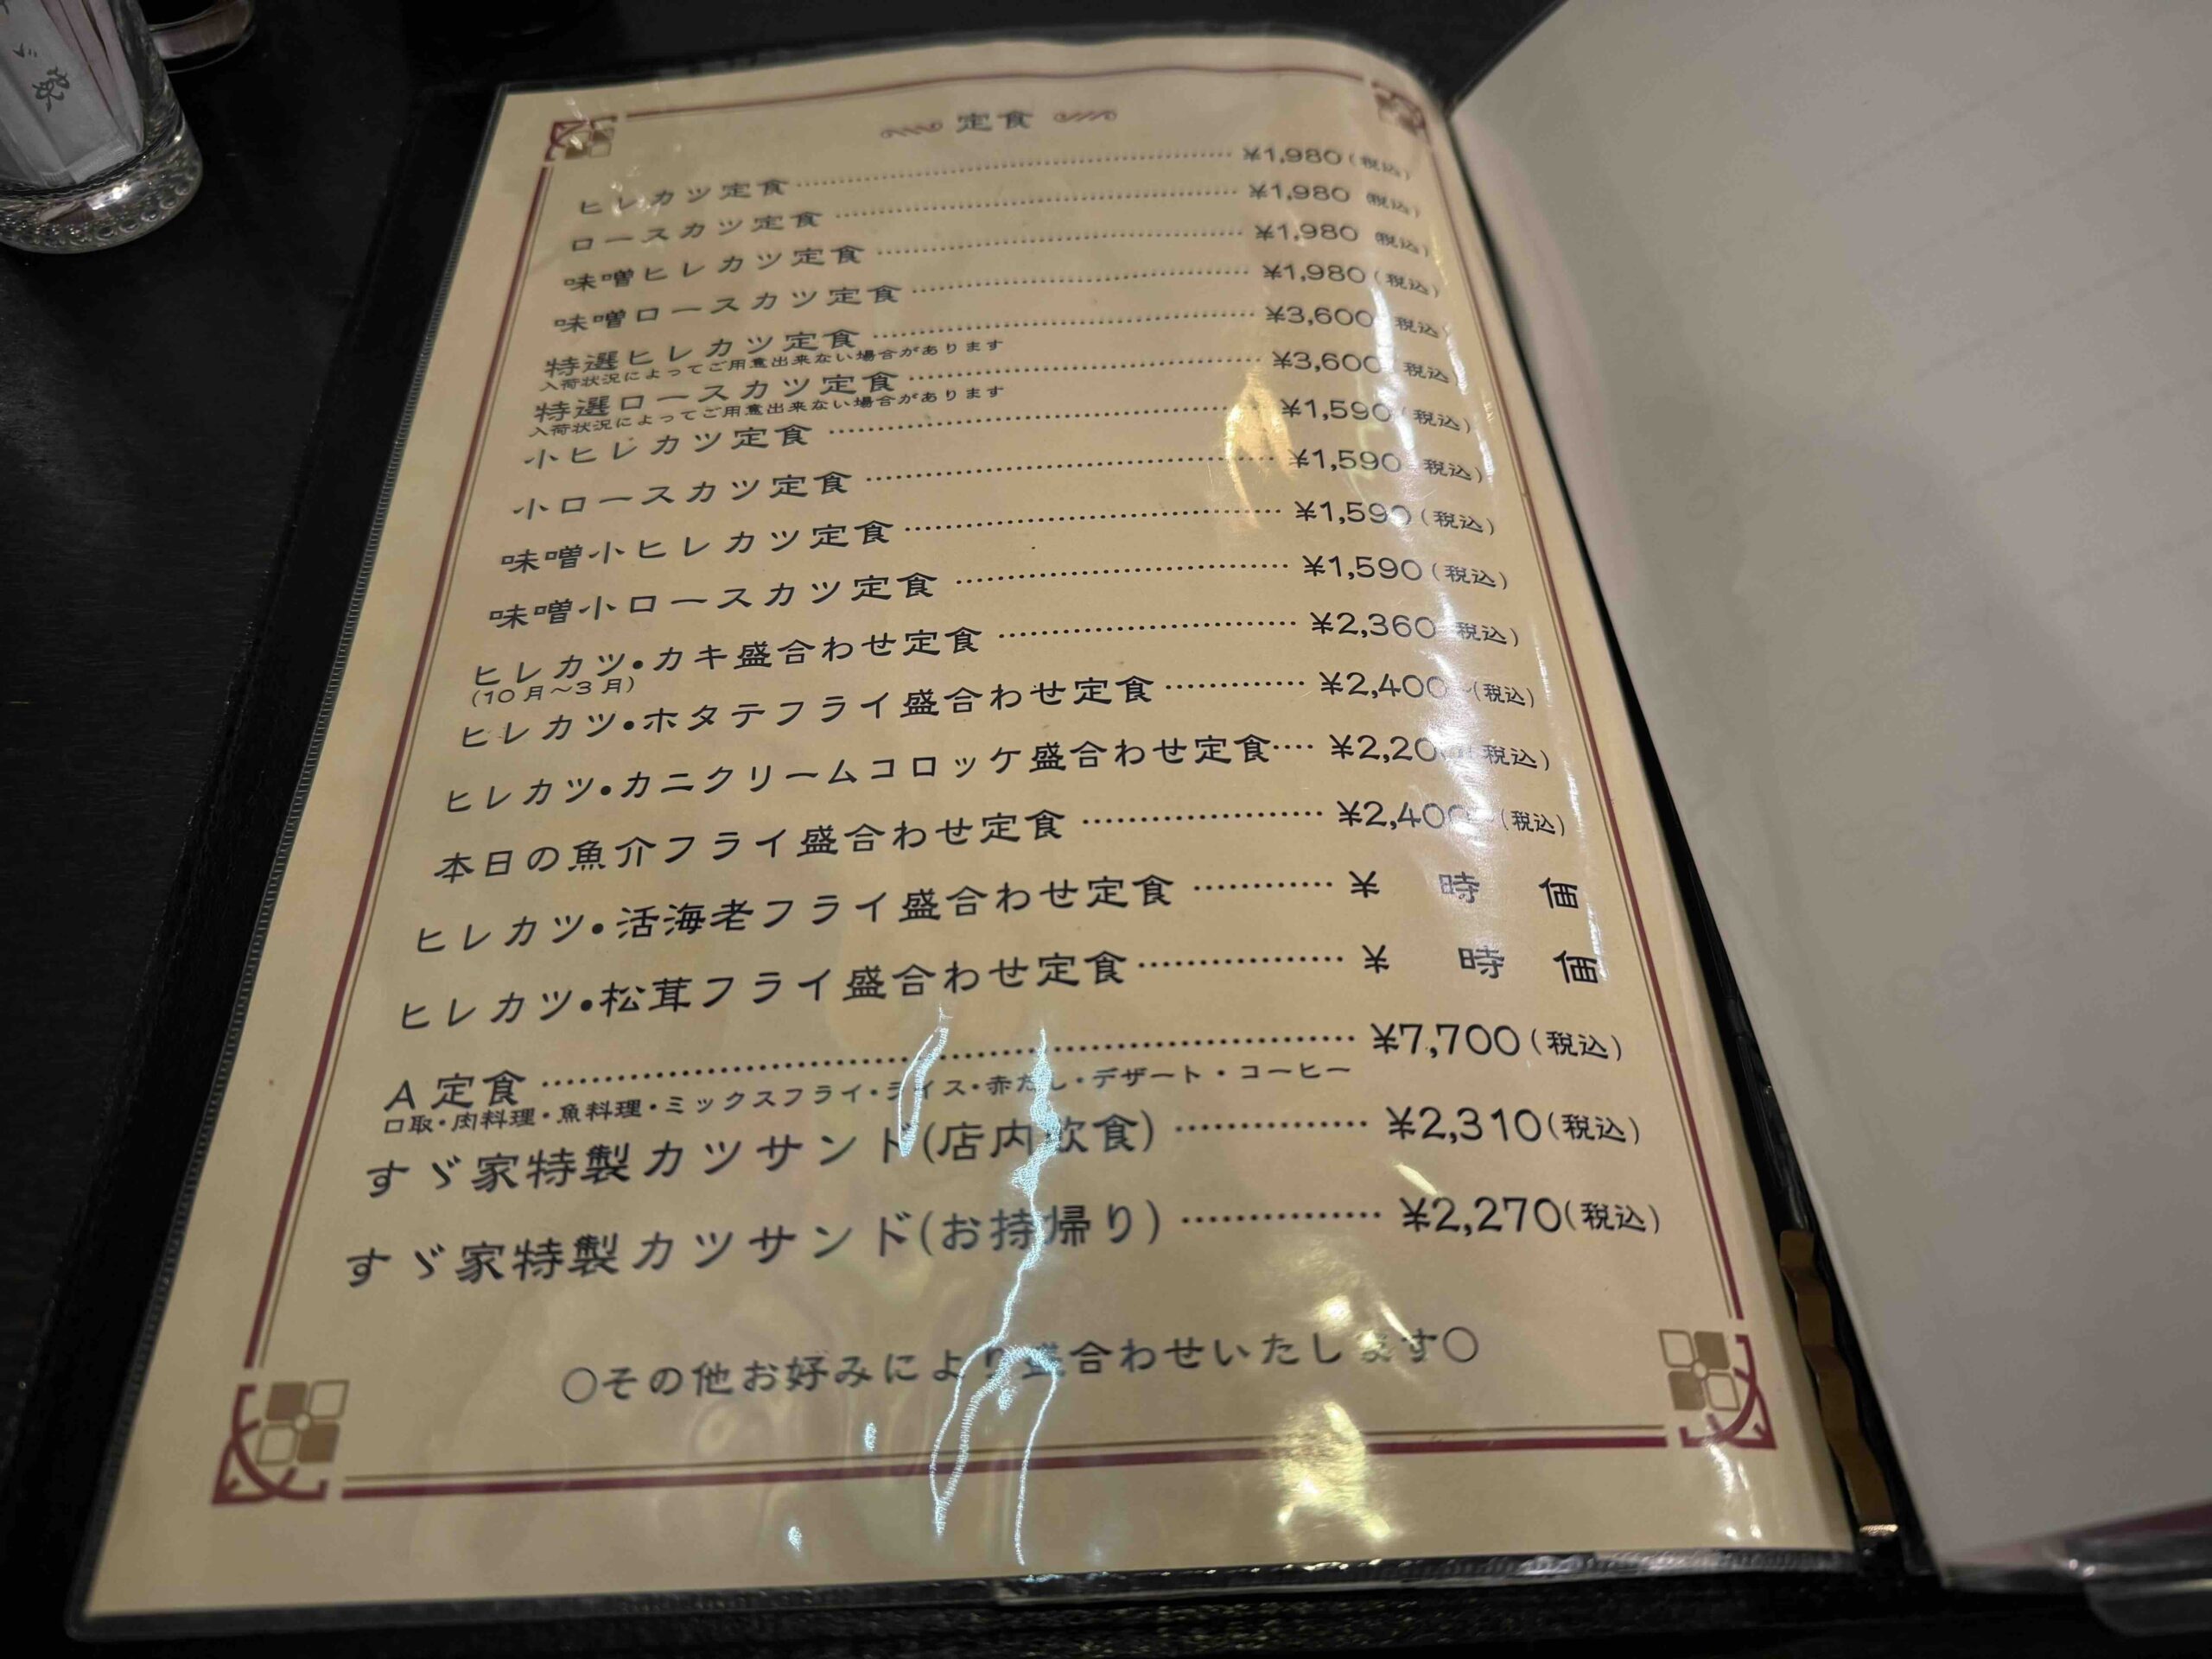 定食
ヒレカツ定食 ¥1,980(税込)
ロースカツ定食 ¥1,980(税込)
味噌ヒレカツ定食 ¥1,980(税込)
味噌ロースカツ定食 ¥1,980(税込)
特選ヒレカツ定食 ¥3,600(税込)
入荷状況によってご用意出来ない場合があります
特選ロースカツ定食 ¥3,600(税込)
入荷状況によってご用意出来ない場合があります
小ヒレカツ定食 ¥1,590(税込)
小ロースカツ定食 ¥1,590(税込)
味噌小ヒレカツ定食 ¥1,590(税込)
味噌小ロースカツ定食 ¥1,590(税込)
ヒレカツ・カキ盛合わせ定食 ¥2,360(税込)
(10月〜3月)
ヒレカツ・ホタテフライ盛合わせ定食 ¥2,400〜(税込)
ヒレカツ・カニクリームコロッケ盛合わせ定食 ¥2,200(税込)
本日の魚介フライ盛合わせ定食 ¥2,400〜(税込)
ヒレカツ・活海老フライ盛合わせ定食 ¥ 時 価
ヒレカツ・松茸フライ盛合わせ定食 ¥ 時 価
A定食 ¥7,700(税込)
口取・肉料理・魚料理・ミックスフライ・ライス・赤だし・デザート・コーヒー
すゞ家特製カツサンド(店内飲食) ¥2,310(税込)
すゞ家特製カツサンド(お持帰り) ¥2,270(税込)
○その他お好みにより盛合わせいたします○